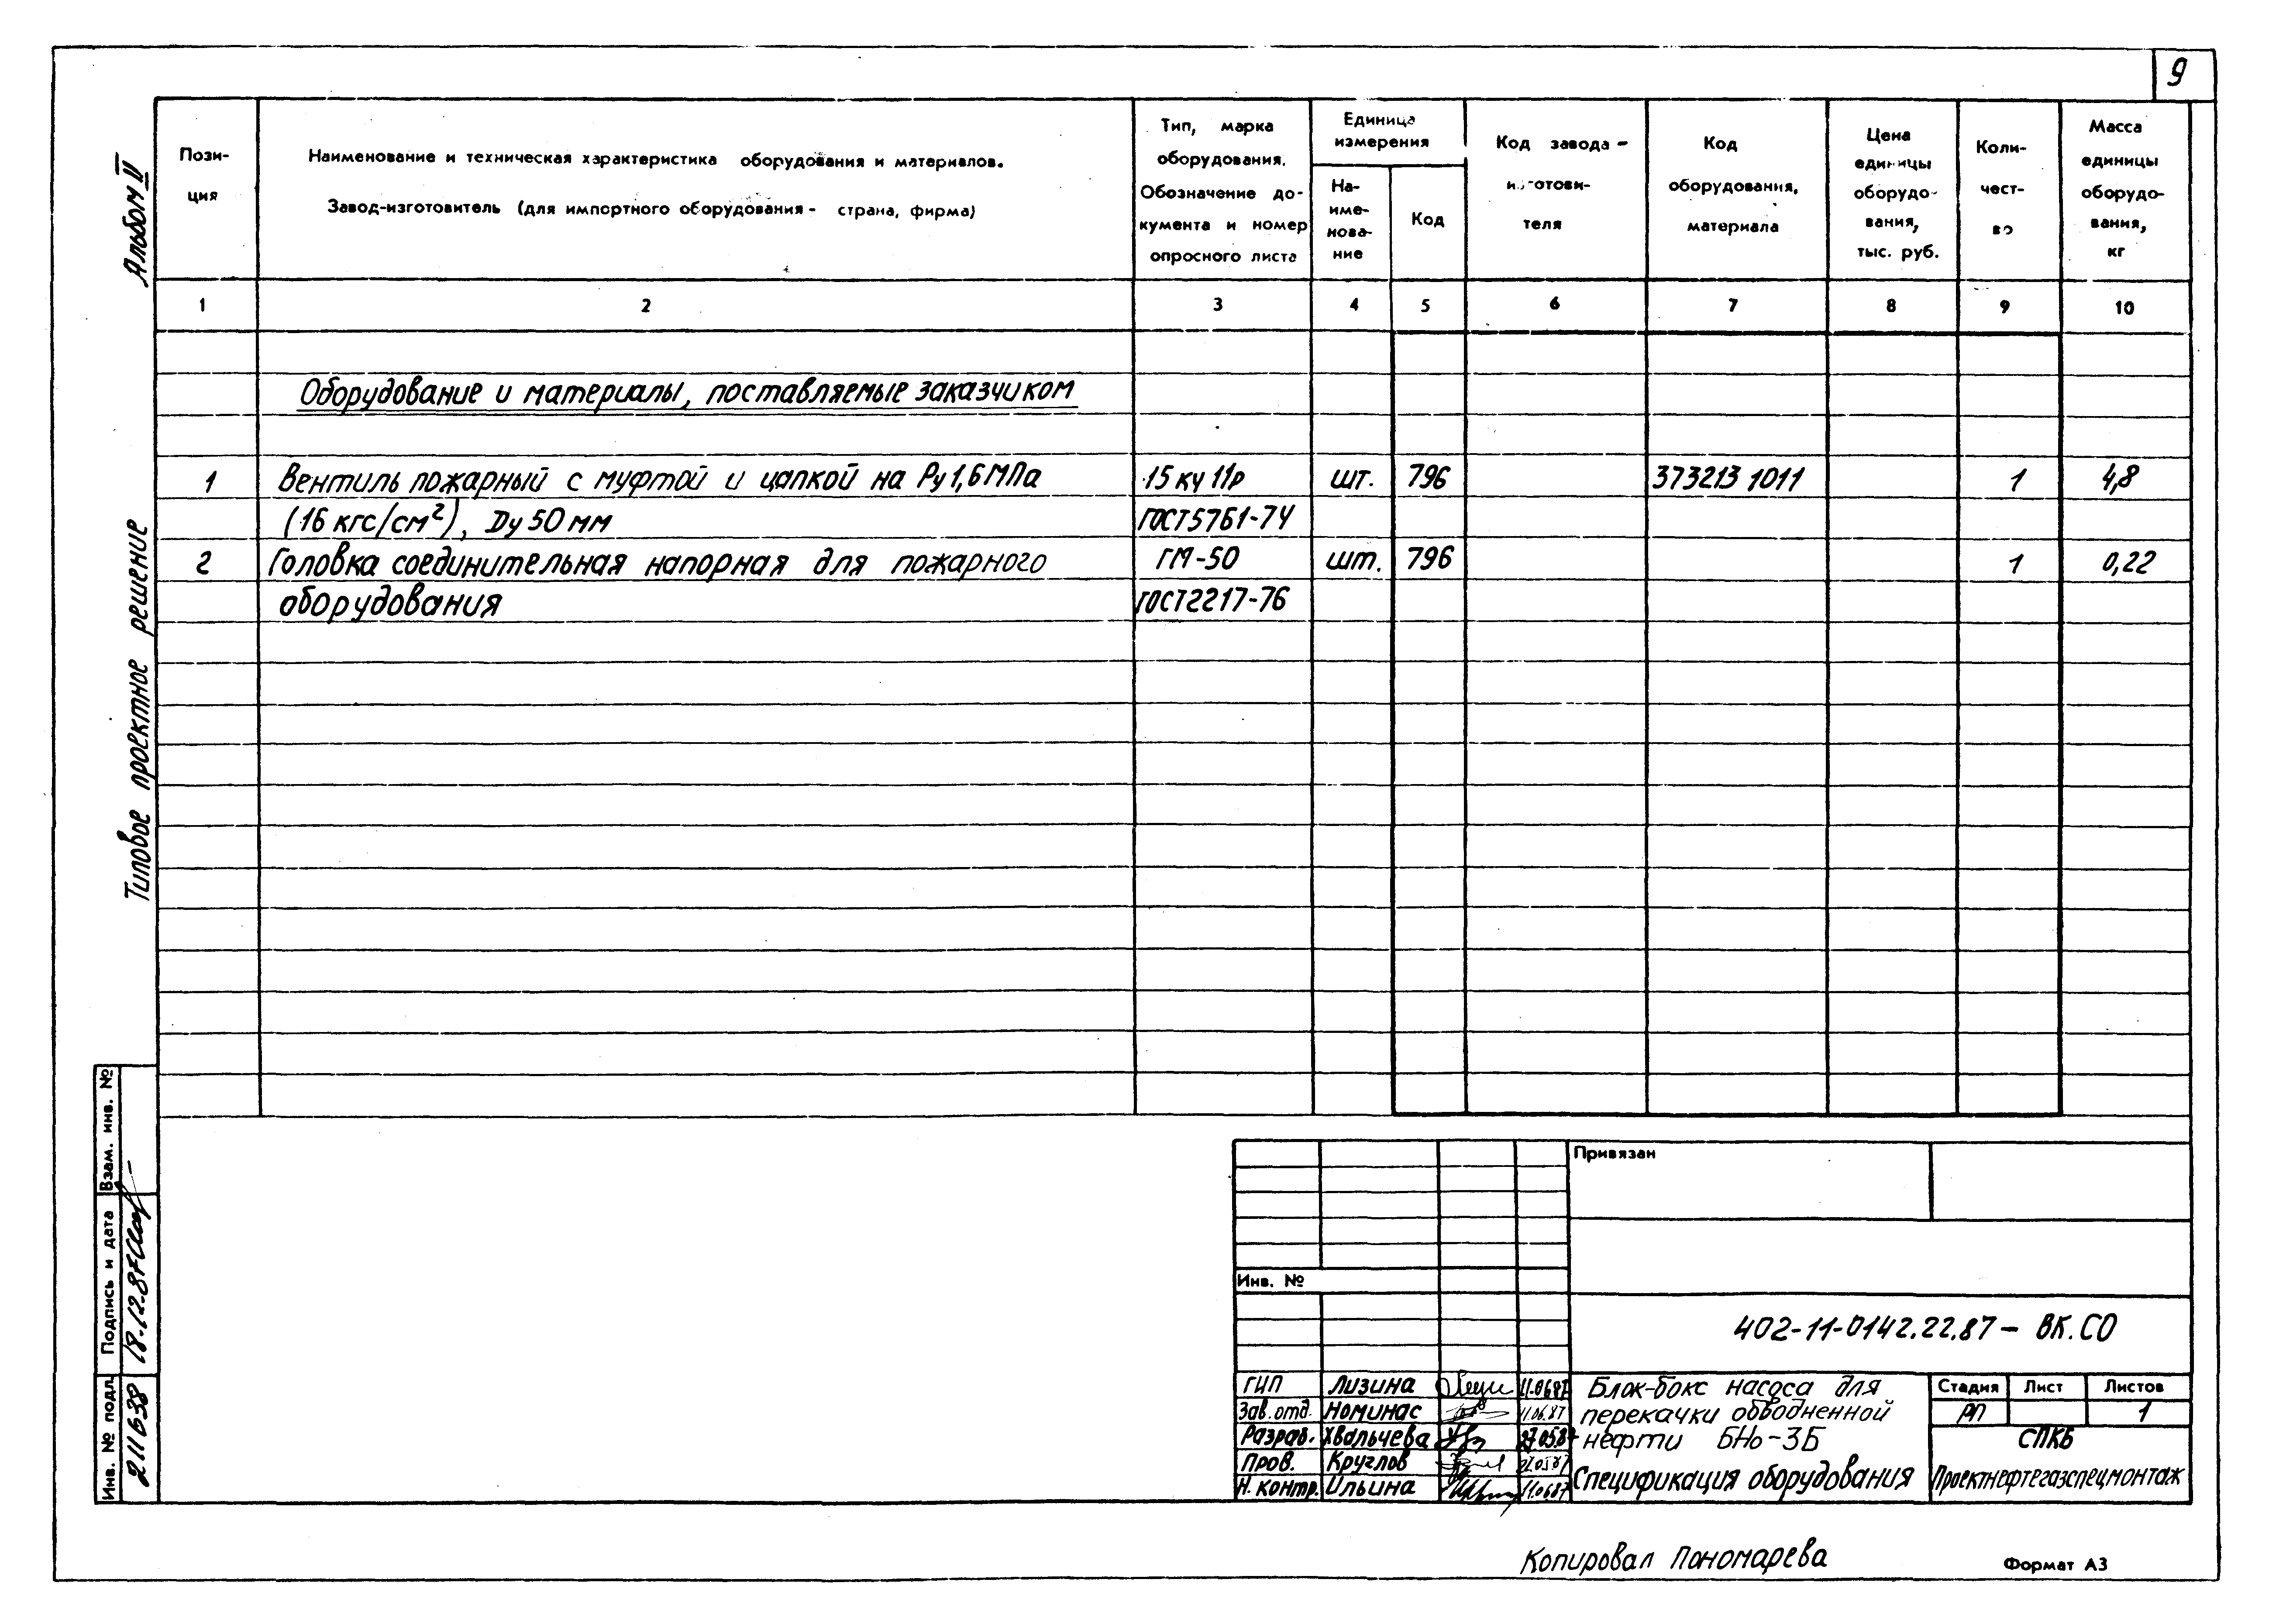 9
Альбом II
Типовое проектное решение
Пози-
ция
Наименование и техническая характеристика оборудования и материалов.
Завод-изготовитель (для импортного оборудования - страна, фирма)
Тип, марка
оборудования.
Обозначение до-
кумента и номер
опросного листа
Единица
измерения
На-
име-
нова-
ние
Код
Код завода -
изготови-
теля
Код
оборудования,
материала
Цена
единицы
оборудо-
вания,
тыс. руб.
Коли-
чест-
во
Масса
единицы
оборудо-
вания,
кг
1 2 3 4 5 6 7 8 9 10
Оборудование и материалы, поставляемые заказчиком
1 Вентиль пожарный с муфтой и цапкой на Ру 1,6 МПа 15 кч 11р шт. 796 373213 1011 1 4,8
(16 кгс/см²), Ду 50 мм ГОСТ 5761-74
2 Головка соединительная напорная для пожарного ГМ-50 шт. 796 1 0,22
оборудования ГОСТ 2217-76
Взам. инв. №
Подпись и дата
18.12.87
Инв. № подл.
211638
Привязан
Инв. №
402-11-0142.22.87 - ВК.СО
ГИП Лизина 11.06.87
Зав. отд. Номинас 11.06.87
Разраб. Хвальчева 27.05.87
Пров. Круглов 27.05.87
Н. контр. Ильина 11.06.87
Блок-бокс насоса для
перекачки обводненной
нефти БНо-3Б
Спецификация оборудования
Стадия Лист Листов
РП 1
СПКБ
Проектнефтегазспецмонтаж
Копировал Пономарева
Формат А3